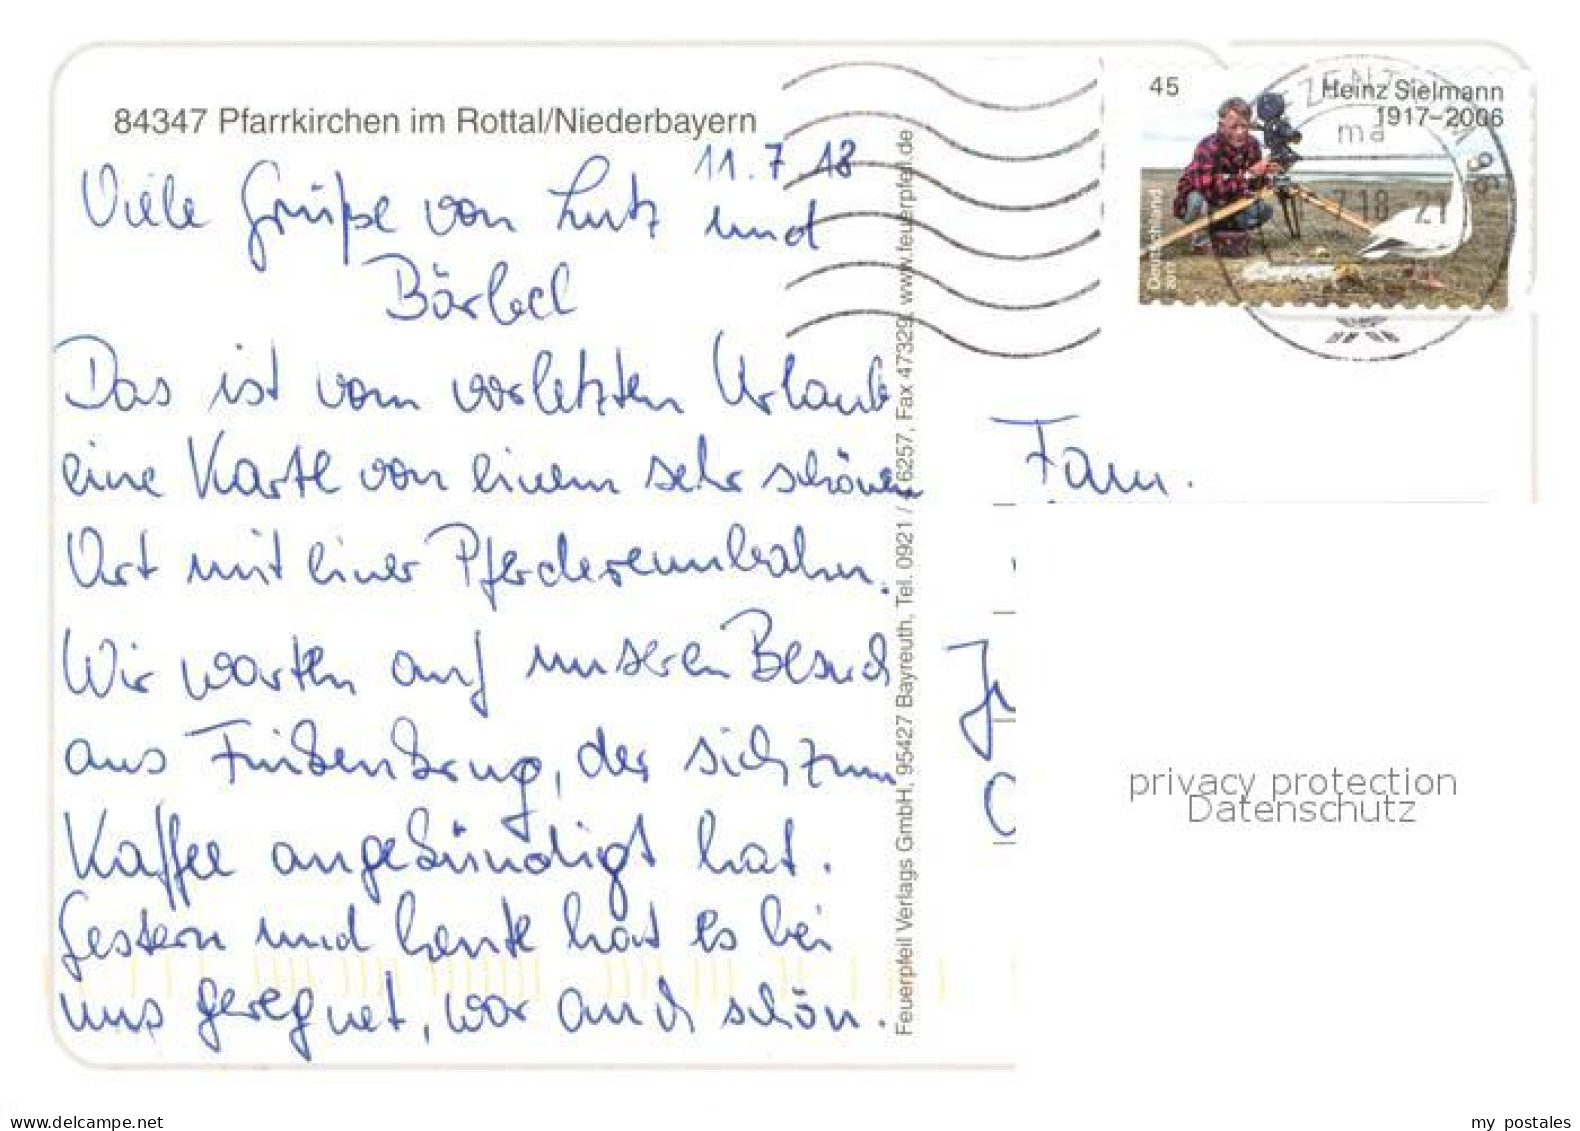 84347 Pfarrkirchen im Rottal/Niederbayern
11.7.18
Viele Grüße von Lutz und
Bärbel
Das ist vom vorletzten Urlaub
eine Karte von einem sehr schönen
Ort mit einer Pferderennbahn.
Wir warten auf unseren Besuch
aus Finkenkrug, der sich zum
Kaffee angekündigt hat.
Gestern und heute hat es bei
uns geregnet, war auch schön.
Feuerpfeil Verlags GmbH, 95427 Bayreuth, Tel. 0921 / 4 6257, Fax 47329, www.feuerpfeil.de
45
Heinz Sielmann
1917–2006
Deutschland
ma
7.18 21
96
Fam.
privacy protection
Datenschutz
www.delcampe.net
my postales